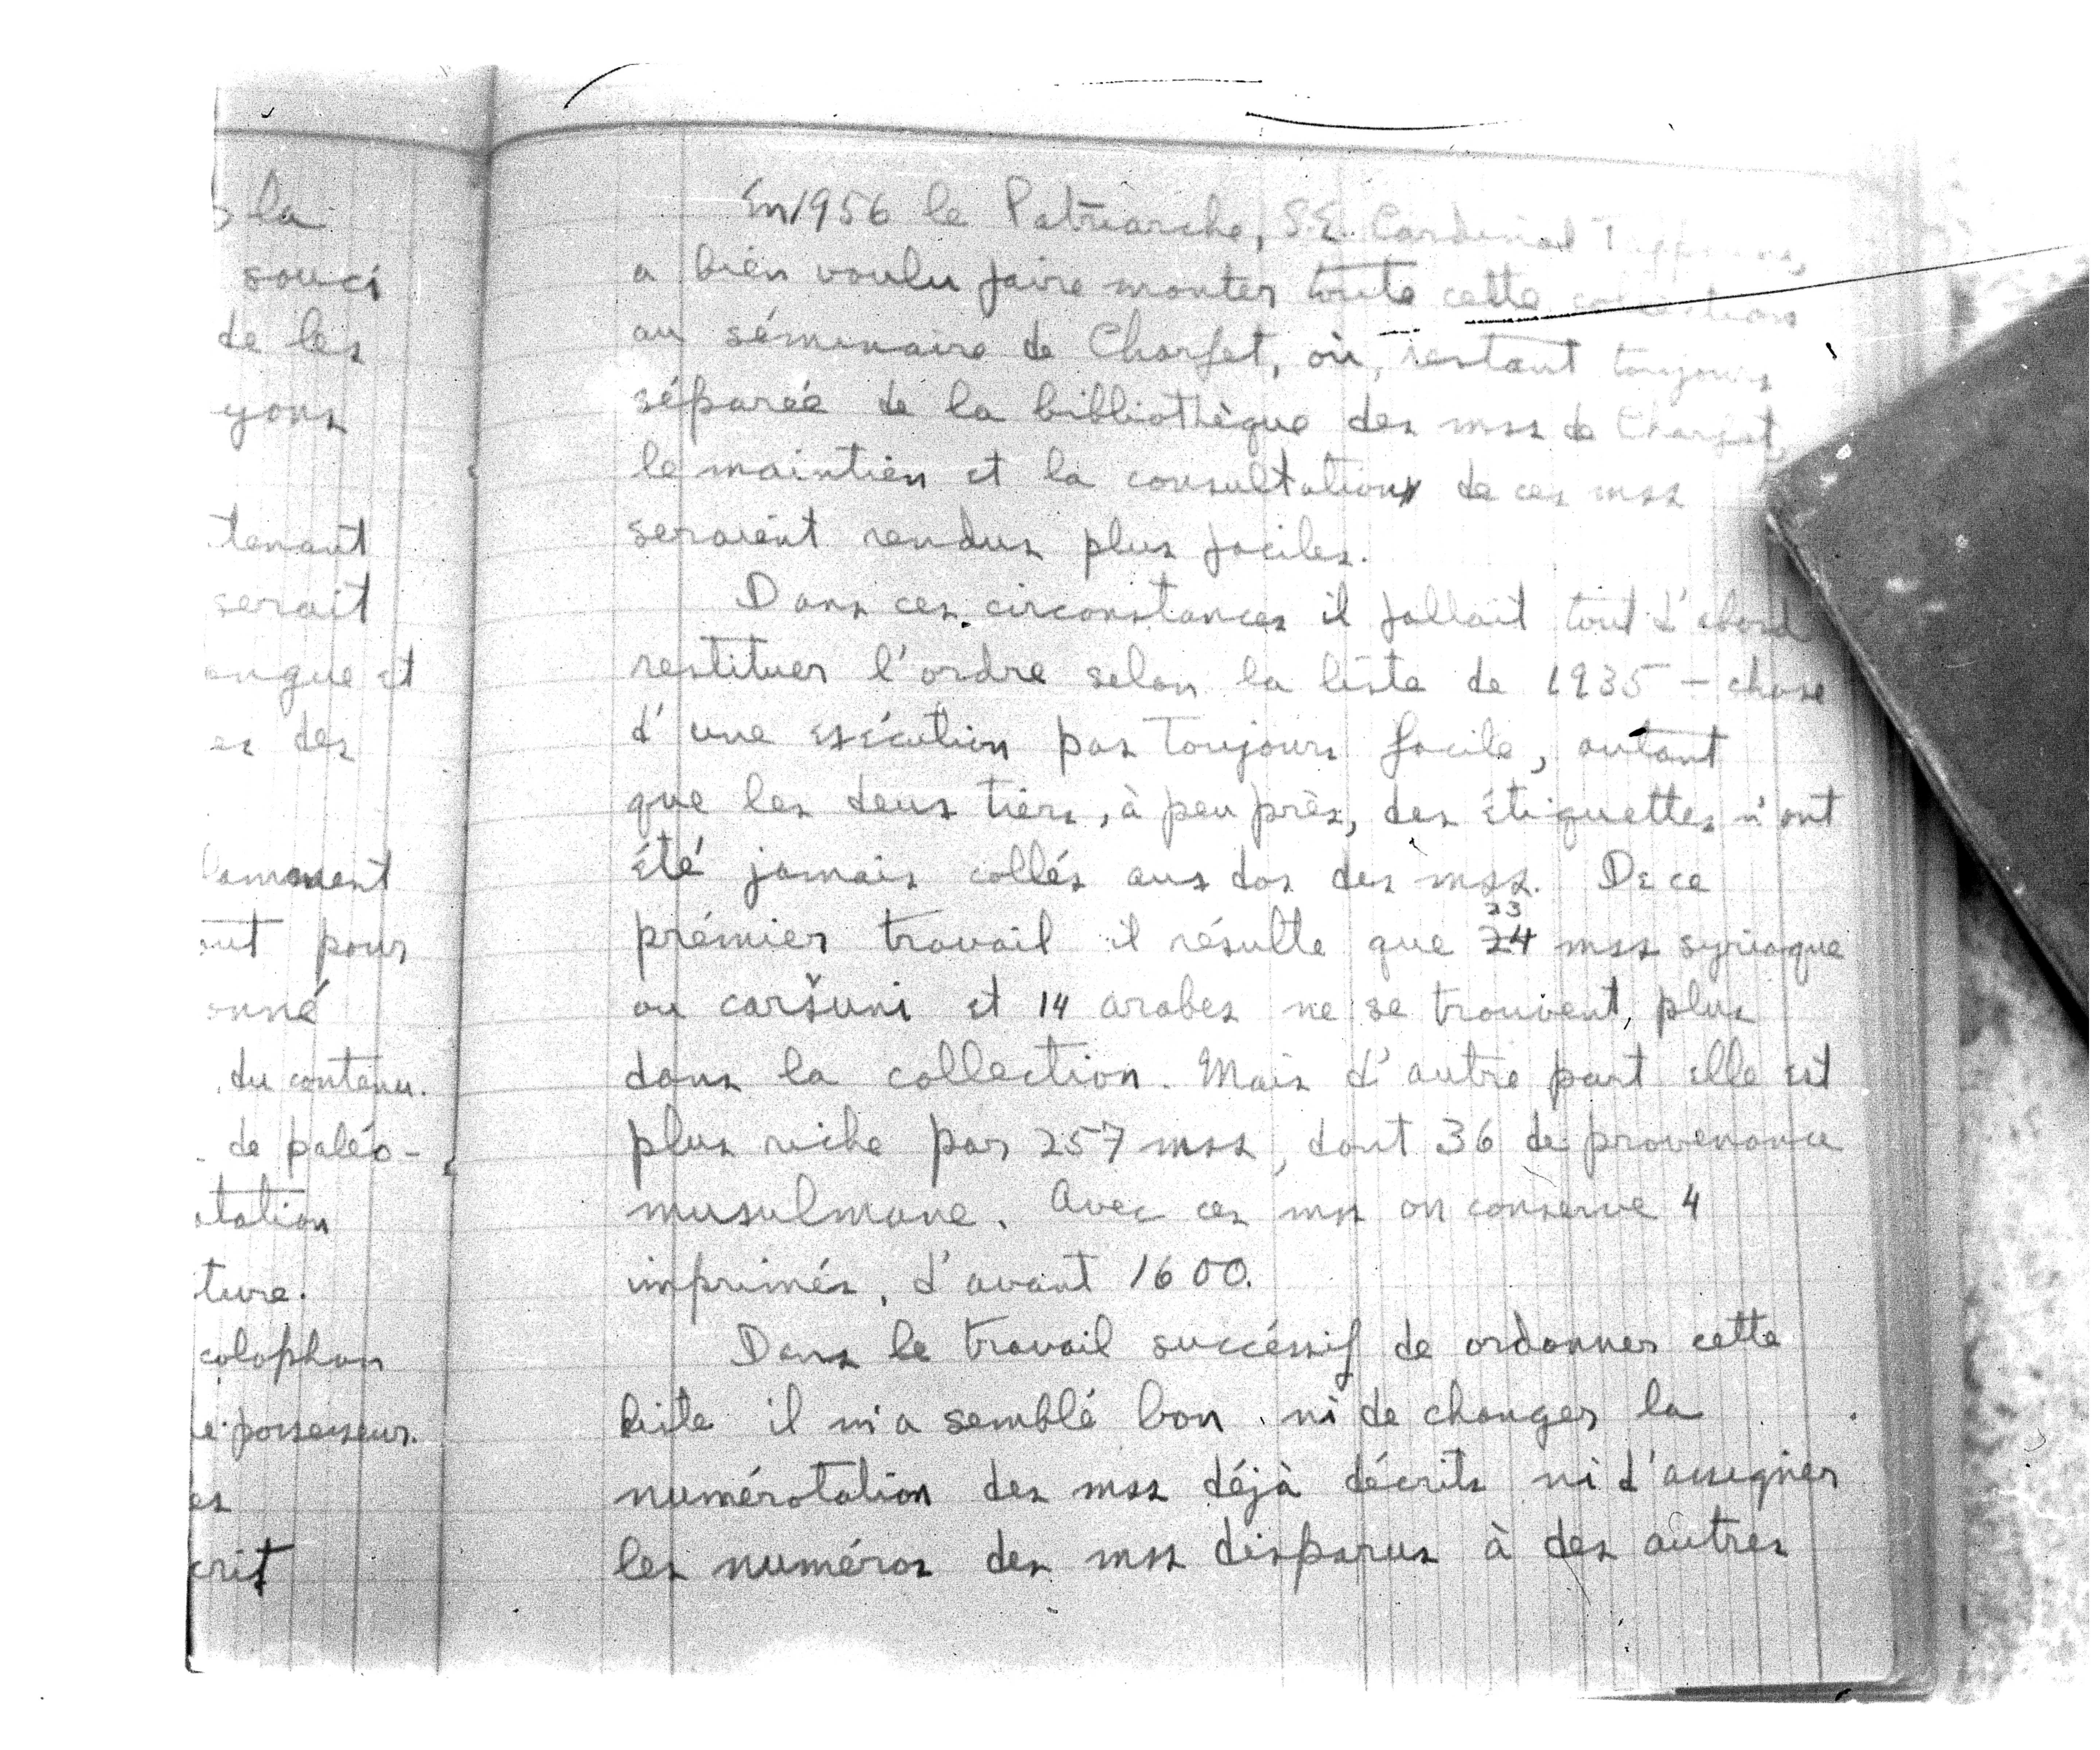 s la
souci
de les
yons
tenant
serait
angue et
es des
lamment
out pour
onné
du contenu.
de paléo-
otation
ture.
colophon
le possesseur.
es
crit
En 1956 le Patriarche, S.E. Cardinal
a bien voulu faire monter toute cette collection
au séminaire de Charfet, où, restant toujours
séparée de la bibliothèque des mss de Charfet,
le maintien et la consultation de ces mss
seraient rendus plus faciles.
Dans ces circonstances il fallait tout d'abord
restituer l'ordre selon la liste de 1935 – chose
d'une esécution pas toujours facile, autant
que les deus tiers, à peu près, des étiquettes n'ont
été jamais collés aus dos des mss. De ce
23
prémier travail il résulte que 24 mss syriaque
ou caršuni et 14 arabes ne se trouvent plus
dans la collection. Mais d'autre part elle est
plus riche par 257 mss, dont 36 de provenance
musulmane. Avec ces mss on conserve 4
imprimés, d'avant 1600.
Dans le travail succéssif de ordonner cette
liste il m'a semblé bon ni de changer la
numérotation des mss déjà décrits ni d'assigner
les numéros des mss disparus à des autres